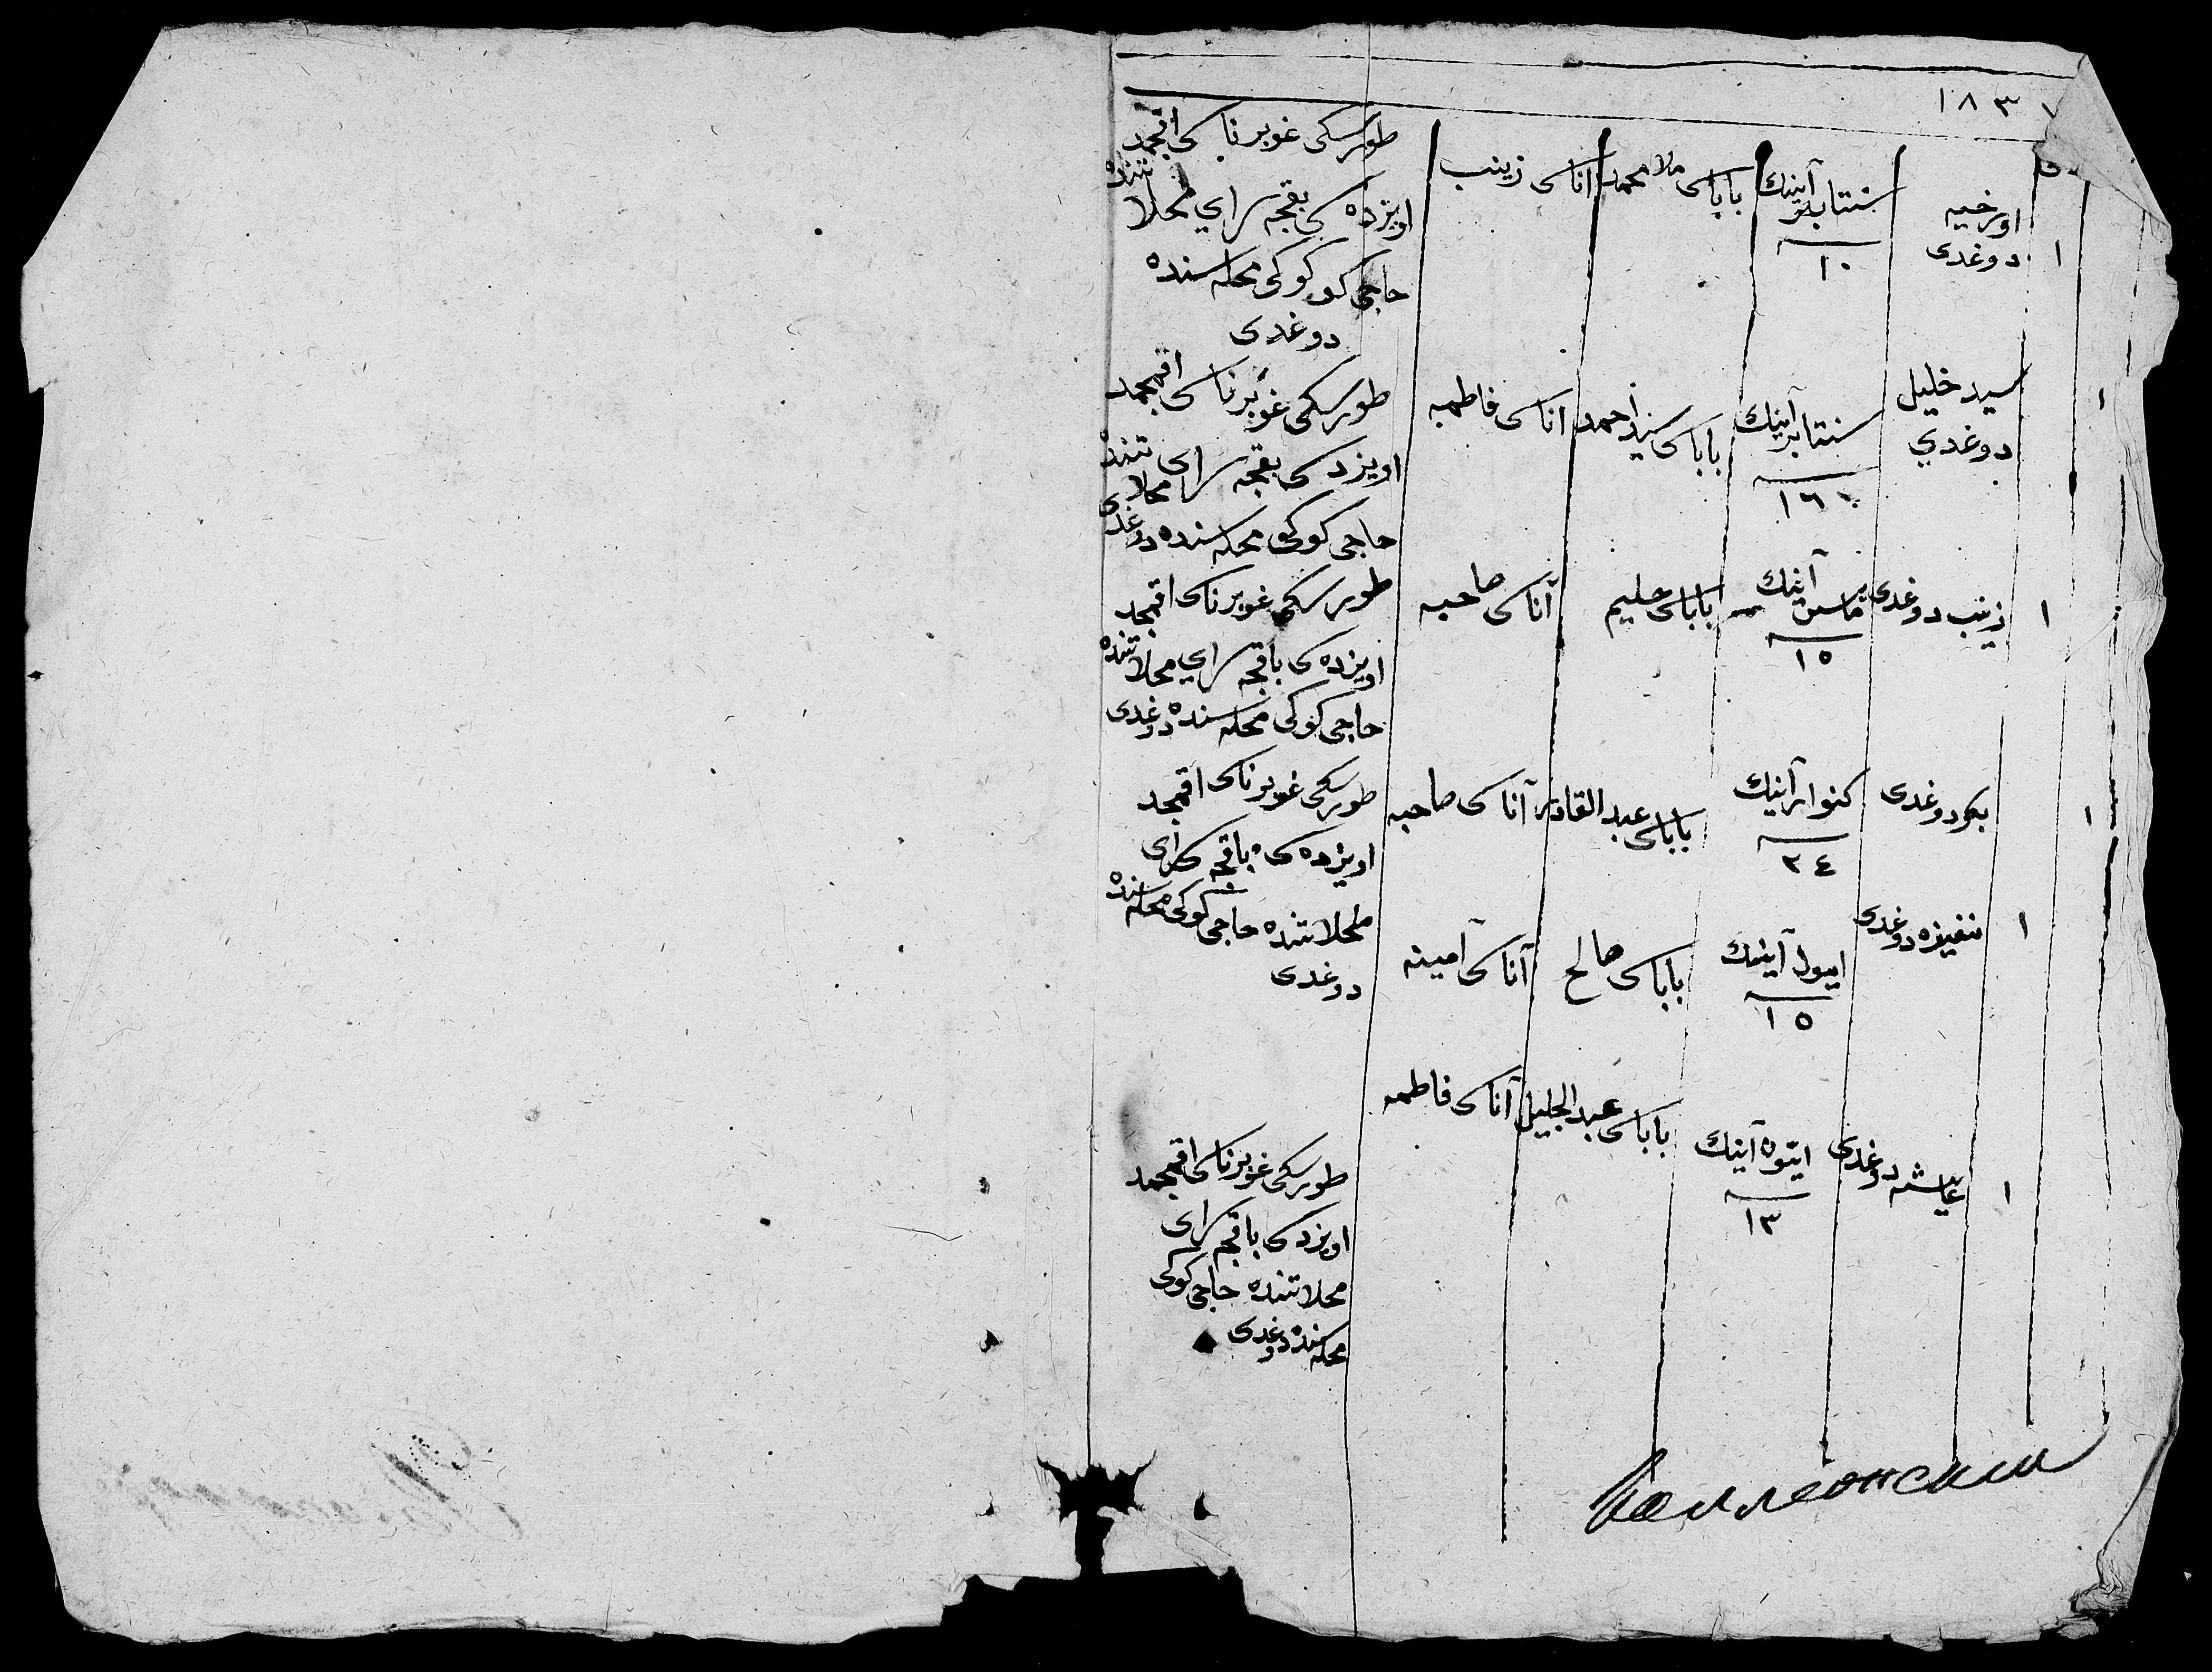 ١٨٣
١
اورخيه
دوغدی
سنتابر آينك
١٠
باباسی ملا محمد
اناسی زينب
طورسکی غوبرناسی اقمجد
اويزده کی بقجه سراي محلاتنده
حاجی کوکی محله سنده
دوغدی
١
سيد خليل
دوغدي
سنتابر آينك
١٦
باباسی سيد احمد
اناسی فاطمه
طورسکی غوبرناسی اقمجد
اويزدکی بقجه سرای محلاتنده
حاجی کوکی محله سنده دوغدی
١
زينب دوغدی
آينك
١٥
باباسی حليم
آناسی صاحبه
طورسکی غوبرناسی اقمجد
اويزده کی باقجه سراي محلاتنده
حاجی کوکی محله سنده دوغدی
١
بکر دوغدی
کنوار آينك
٢٤
باباسی عبد القادر
آناسی صاحبه
طورسکی غوبرناسی اقمجد
اويزده کی باقجه سرای
محلاتنده حاجی کوکی محله سنده
دوغدی
١
نفيزه دوغدی
ايول آينك
١٥
باباسی صالح
آناسی امينه
١
عائشه دوغدی
ايون آينك
١٣
باباسی عبد الجليل
آناسی فاطمه
طورسکی غوبرناسی اقمجد
اويزدکی باقجه سرای
محلاتنده حاجی کوکی
محله سنده دوغدی